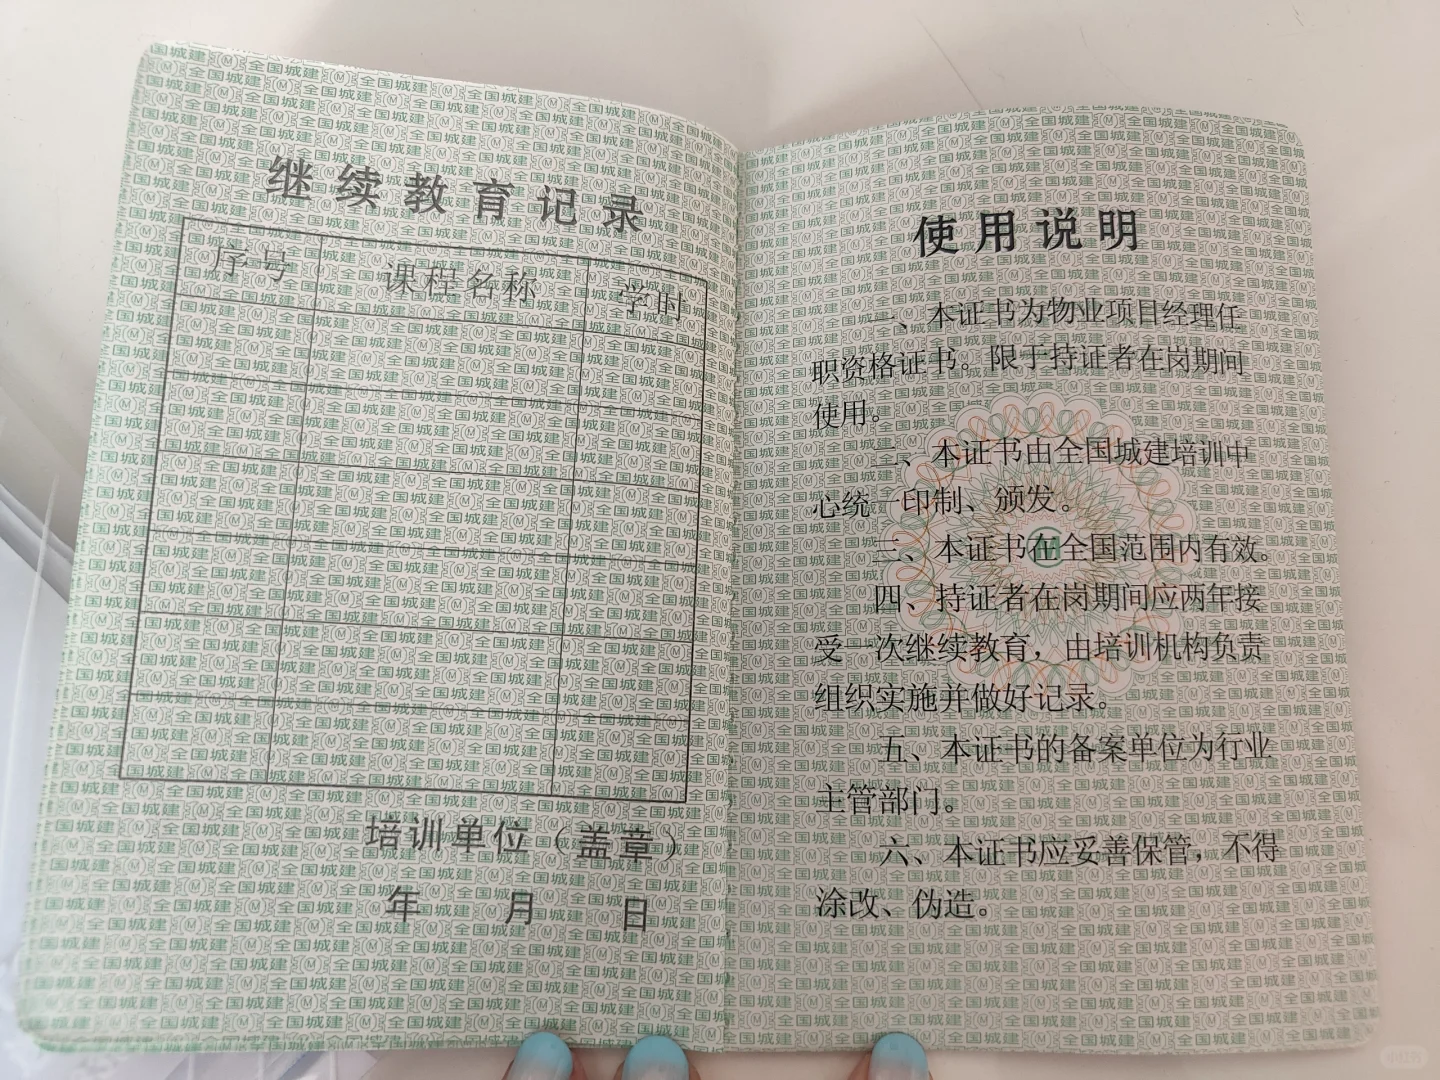 继续教育记录
序号 课程名称 学时
培训单位（盖章）
年 月 日
使用说明
一、本证书为物业项目经理任
职资格证书。限于持证者在岗期间
使用。
二、本证书由全国城建培训中
心统一印制、颁发。
三、本证书在全国范围内有效。
四、持证者在岗期间应两年接
受一次继续教育，由培训机构负责
组织实施并做好记录。
五、本证书的备案单位为行业
主管部门。
六、本证书应妥善保管，不得
涂改、伪造。
全国城建
小红书